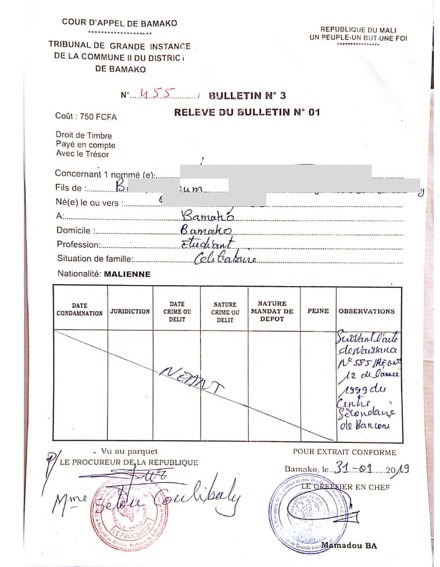 COUR D'APPEL DE BAMAKO
REPUBLIQUE DU MALI
UN PEUPLE-UN BUT-UNE FOI
TRIBUNAL DE GRANDE INSTANCE
DE LA COMMUNE II DU DISTRICT
DE BAMAKO
N° 455 BULLETIN N° 3
RELEVE DU BULLETIN N° 01
Coût : 750 FCFA
Droit de Timbre
Payé en compte
Avec le Trésor
Concernant 1 nommé (e):
Fils de :
Né(e) le ou vers :
A: Bamako
Domicile : Bamako
Profession: Etudiant
Situation de famille: Celibataire
Nationalité: MALIENNE
DATE CONDAMNATION
JURIDICTION
DATE CRIME OU DELIT
NATURE CRIME OU DELIT
NATURE MANDAT DE DEPOT
PEINE
OBSERVATIONS
NEANT
Suivant l'acte
de Naissance
N° 585
12 de l'année
1999 du
Centre
Secondaire
de Banconi
Vu au parquet
LE PROCUREUR DE LA REPUBLIQUE
P/
Mme Sélou Coulibaly
POUR EXTRAIT CONFORME
Bamako, le 31-01 2019
LE GREFFIER EN CHEF
Mamadou BA